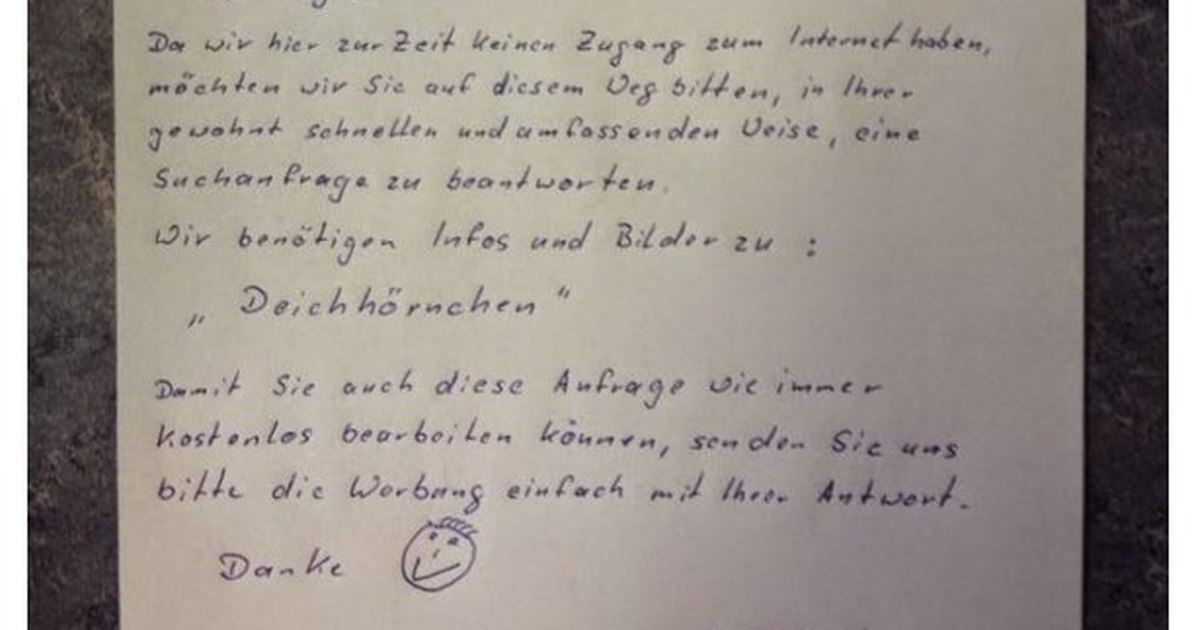 Da wir hier zur Zeit keinen Zugang zum Internet haben,
möchten wir Sie auf diesem Weg bitten, in Ihrer
gewohnt schnellen und umfassenden Weise, eine
Suchanfrage zu beantworten.
Wir benötigen Infos und Bilder zu :
„ Deichhörnchen "
Damit Sie auch diese Anfrage wie immer
kostenlos bearbeiten können, senden Sie uns
bitte die Werbung einfach mit Ihrer Antwort.
Danke